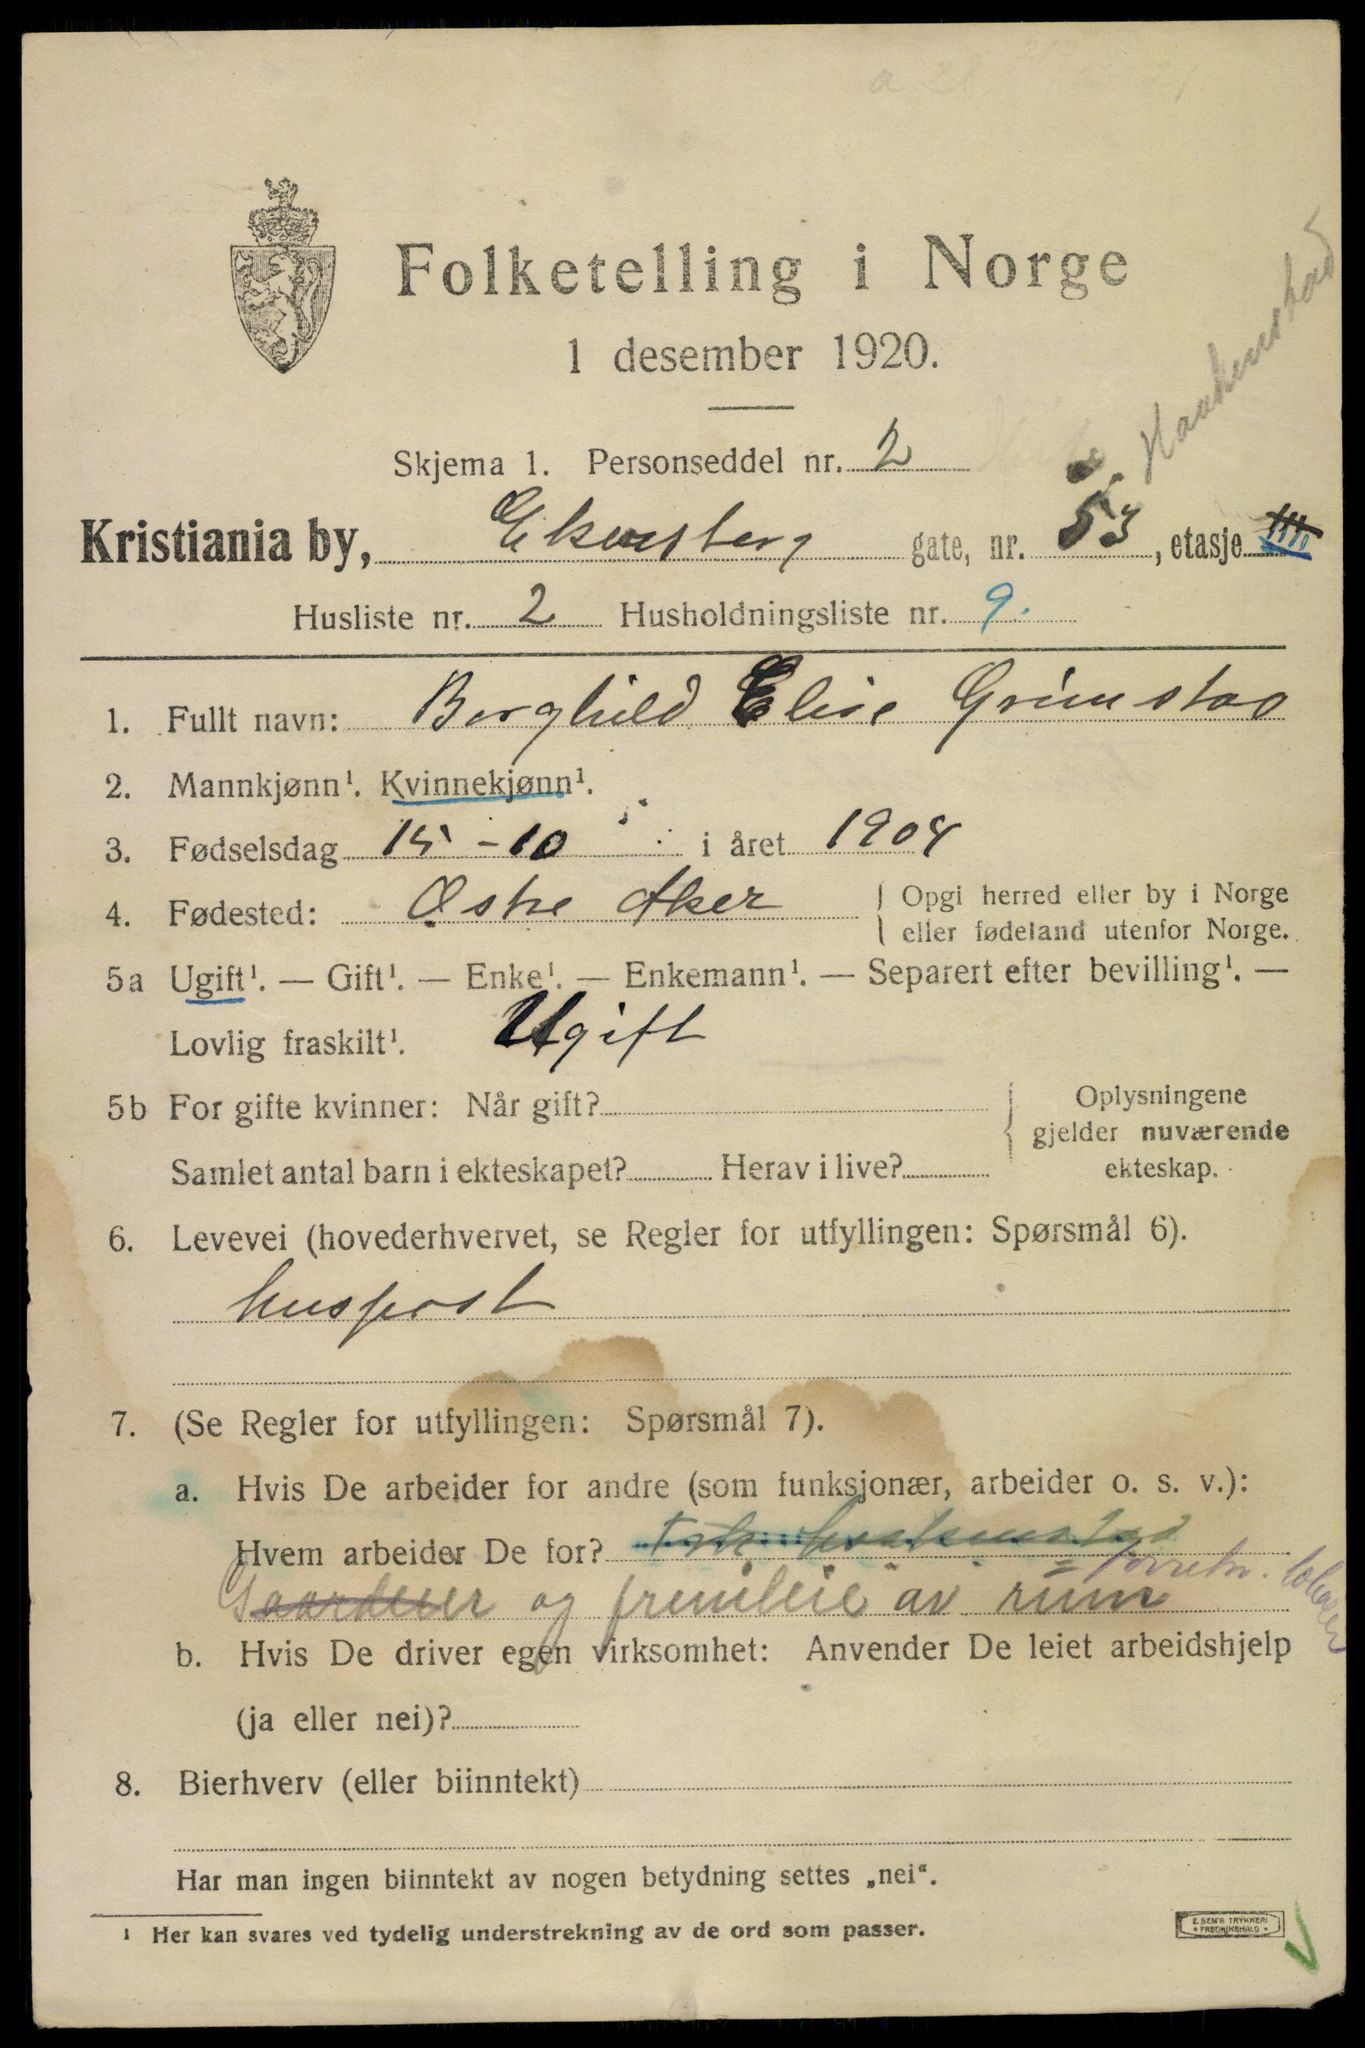 Folketelling i Norge
1 desember 1920.
Skjema 1. Personseddel nr. 2
Haakenstad
Kristiania by, Ekersberg gate, nr. 53, etasje
Husliste nr. 2 Husholdningsliste nr. 9.
1. Fullt navn: Borghild Elise Grimstad
2. Mannkjønn¹. Kvinnekjønn¹.
3. Fødselsdag 15-10 i året 1904
4. Fødested: Østre Aker { Opgi herred eller by i Norge
eller fødeland utenfor Norge.
5a Ugift¹. — Gift¹. — Enke¹. — Enkemann¹. — Separert efter bevilling¹. —
Lovlig fraskilt¹. Ugift
5b For gifte kvinner: Når gift? Oplysningene
gjelder nuværende
Samlet antal barn i ekteskapet? Herav i live? ekteskap.
6. Levevei (hovederhvervet, se Regler for utfyllingen: Spørsmål 6).
huspost
7. (Se Regler for utfyllingen: Spørsmål 7).
a. Hvis De arbeider for andre (som funksjonær, arbeider o. s. v.):
Hvem arbeider De for? Haakenstad
Gaardeier og fremleie av rum = forretn. lokaler
b. Hvis De driver egen virksomhet: Anvender De leiet arbeidshjelp
(ja eller nei)?
8. Bierhverv (eller biinntekt)
Har man ingen biinntekt av nogen betydning settes „nei“.
¹ Her kan svares ved tydelig understrekning av de ord som passer.
E. SEM'S TRYKKERI
FREDRIKSHALD